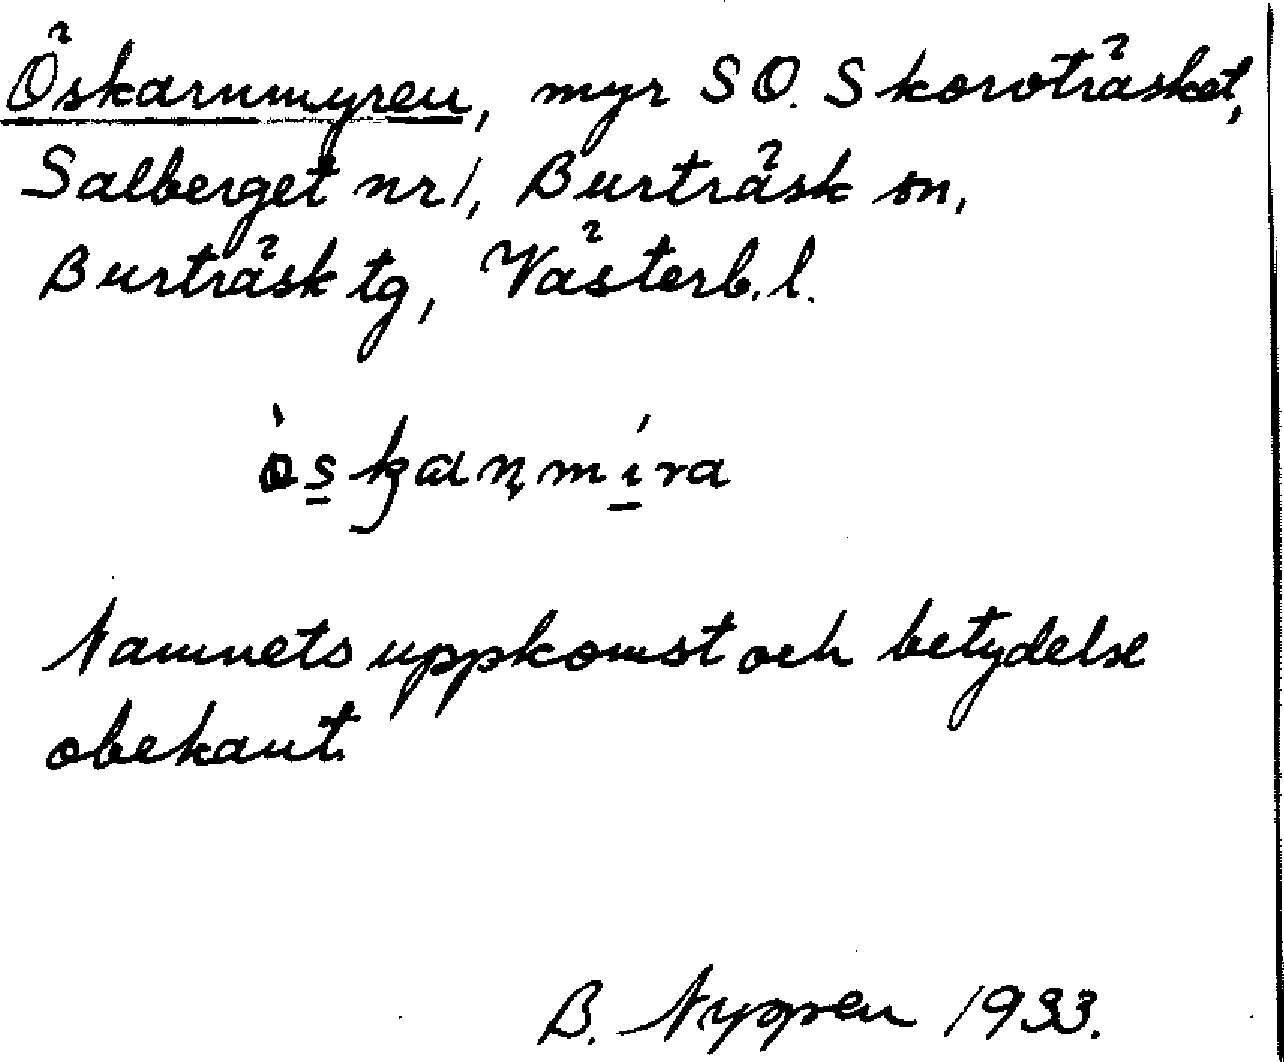 Öskarnmyren, myr SO. Skorvträsket,
Salberget nr 1, Burträsk sn,
Burträsk tg, Västerb. l.
Namnets uppkomst och betydelse
obekant.
B. Nyppen 1933.